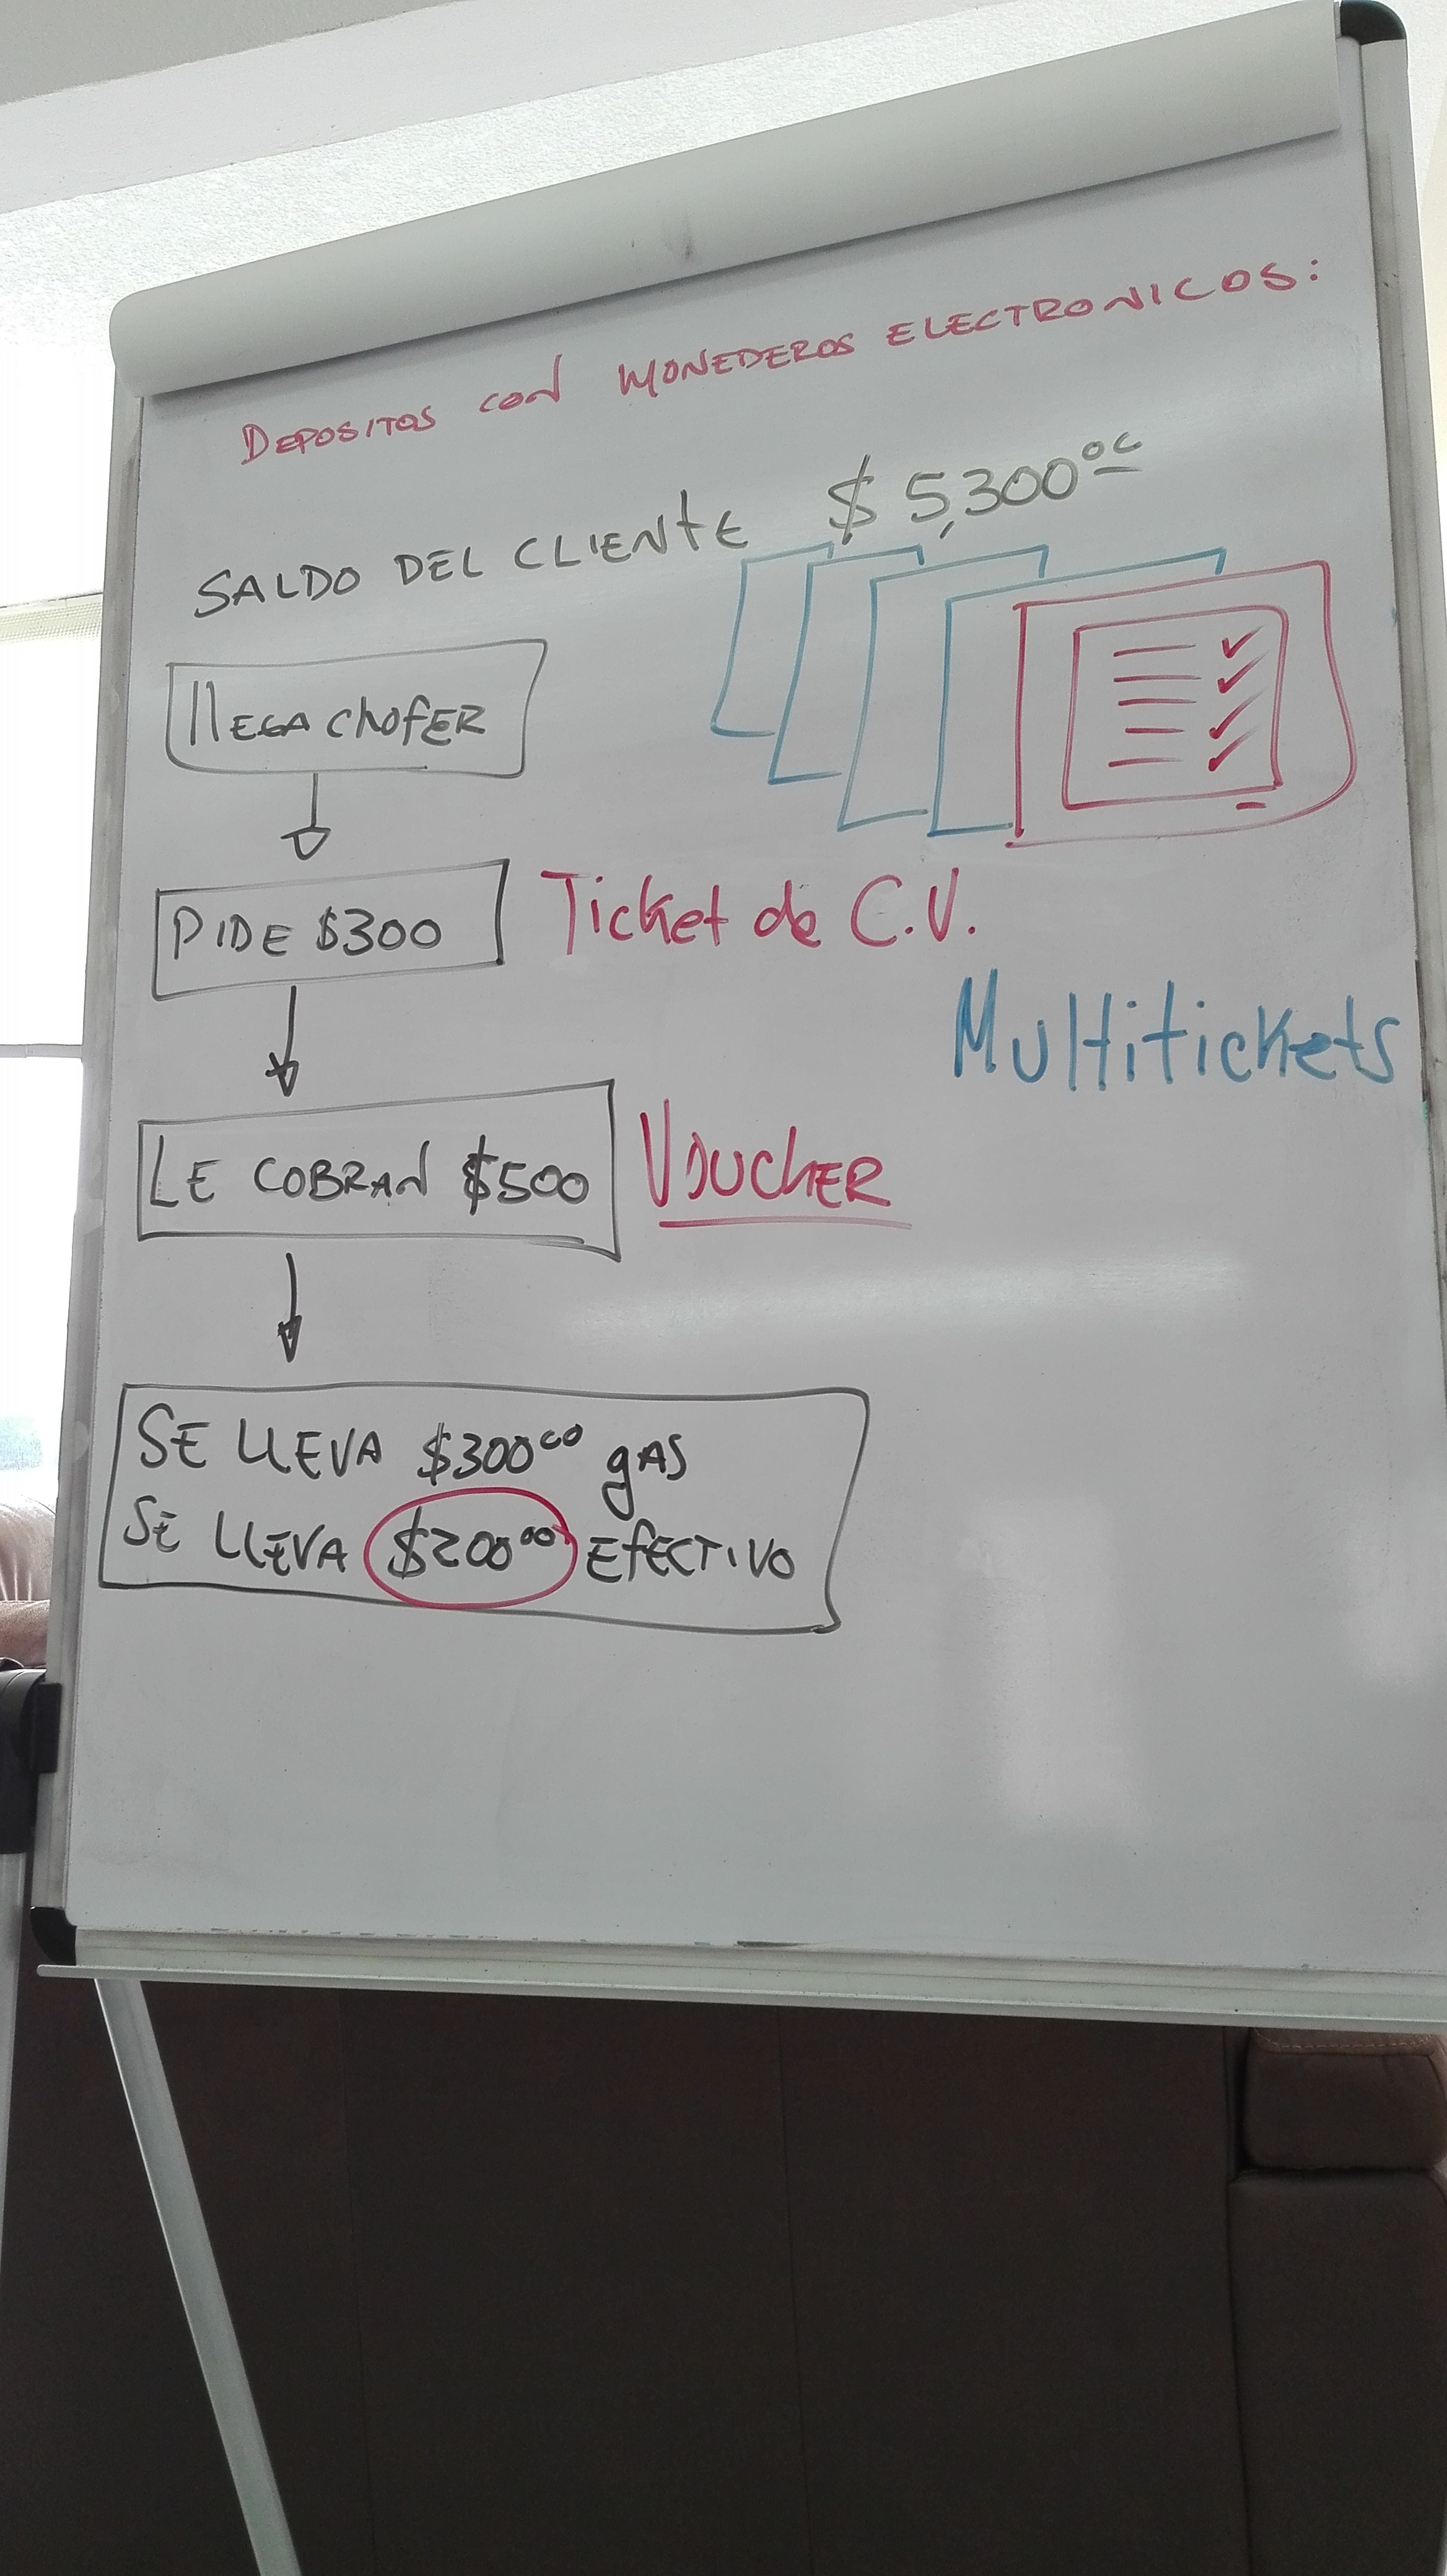 DEPOSITOS CON MONEDEROS ELECTRONICOS:
SALDO DEL CLIENTE $5,300.00
llEGA ChOfER
PIDE $300 Ticket de C.V.
Multitickets
LE COBRAN $500 VOUCHER
SE LLEVA $300.00 gAS
SE LLEVA $200.00 EfECTIVO